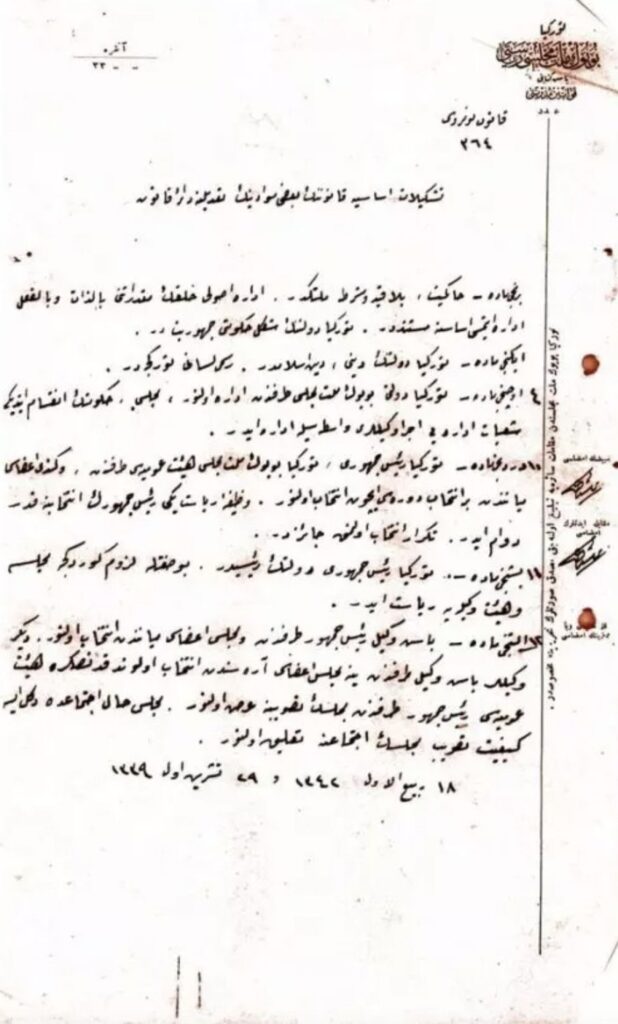 توركيا
بويوك ملت مجلسى رياستى
قوانين مديريتى
عدد
آنقره
٣٣ - -
قانون نومروسى
٣٦٤
تشكيلات اساسيه قانوننك بعض موادينك تعديلنه دائر قانون
برنجى ماده - حاكميت ، بلا قيد و شرط ملتكدر . اداره اصولى خلقك مقدراتنى بالذات و بالفعل
اداره ايتمسى اساسنه مستنددر . توركيا دولتنك شكل حكومتى جمهوريت در .
ايكنجى ماده - توركيا دولتنك دينى ، دين اسلامدر . رسمى لسانى توركجه در .
٤ اوچنجى ماده - توركيا دولتى بويوك ملت مجلسى طرفندن اداره اولنور ، مجلس ، حكومتك انقسام ايتديكى
شعبات اداره يى اجرا وكيللرى واسطه سيله اداره ايدر .
١٠ دردنجى ماده - توركيا رئيس جمهورى ، توركيا بويوك ملت مجلسى هيئت عموميه سى طرفندن ، و كندى اعضاسى
ميانندن بر انتخاب دوره سى ايچون انتخاب اولنور . وظيفه رياست يكى رئيس جمهورك انتخابنه قدر
دوام ايدر . تكرار انتخاب اولنمق جائزدر .
١١ بشنجى ماده - توركيا رئيس جمهورى دولتك رئيسيدر . بو صفتله لزوم كوردكجه مجلسه
و هيئت وكيليه يه رياست ايدر .
١٢ آلتنجى ماده - باش وكيل رئيس جمهور طرفندن و مجلس اعضاسى ميانندن انتخاب اولنور . ديكر
وكيللر باش وكيل طرفندن ينه مجلس اعضاسى آره سندن انتخاب اولوندقدنصكره هيئت
عموميه سى رئيس جمهور طرفندن مجلسك تصويبنه عرض اولنور . مجلس حال اجتماعده دكل ايسه
كيفيت تصويب مجلسك اجتماعنه تعليق اولنور .
١٨ ربيع الاول ١٣٤٢ و ٢٩ تشرين اول ١٣٣٩